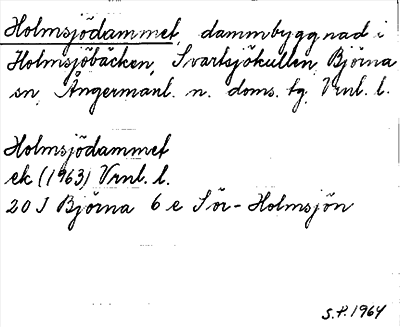 Holmsjödammet, dammbyggnad i
Holmsjöbäcken, Svartsjökullen, Björna
sn, Ångermanl. n. doms. tg, Vrnl. l.
Holmsjödammet
ek (1963) Vrnl. l.
20 I Björna 6 e Sör-Holmsjön
S.P. 1964